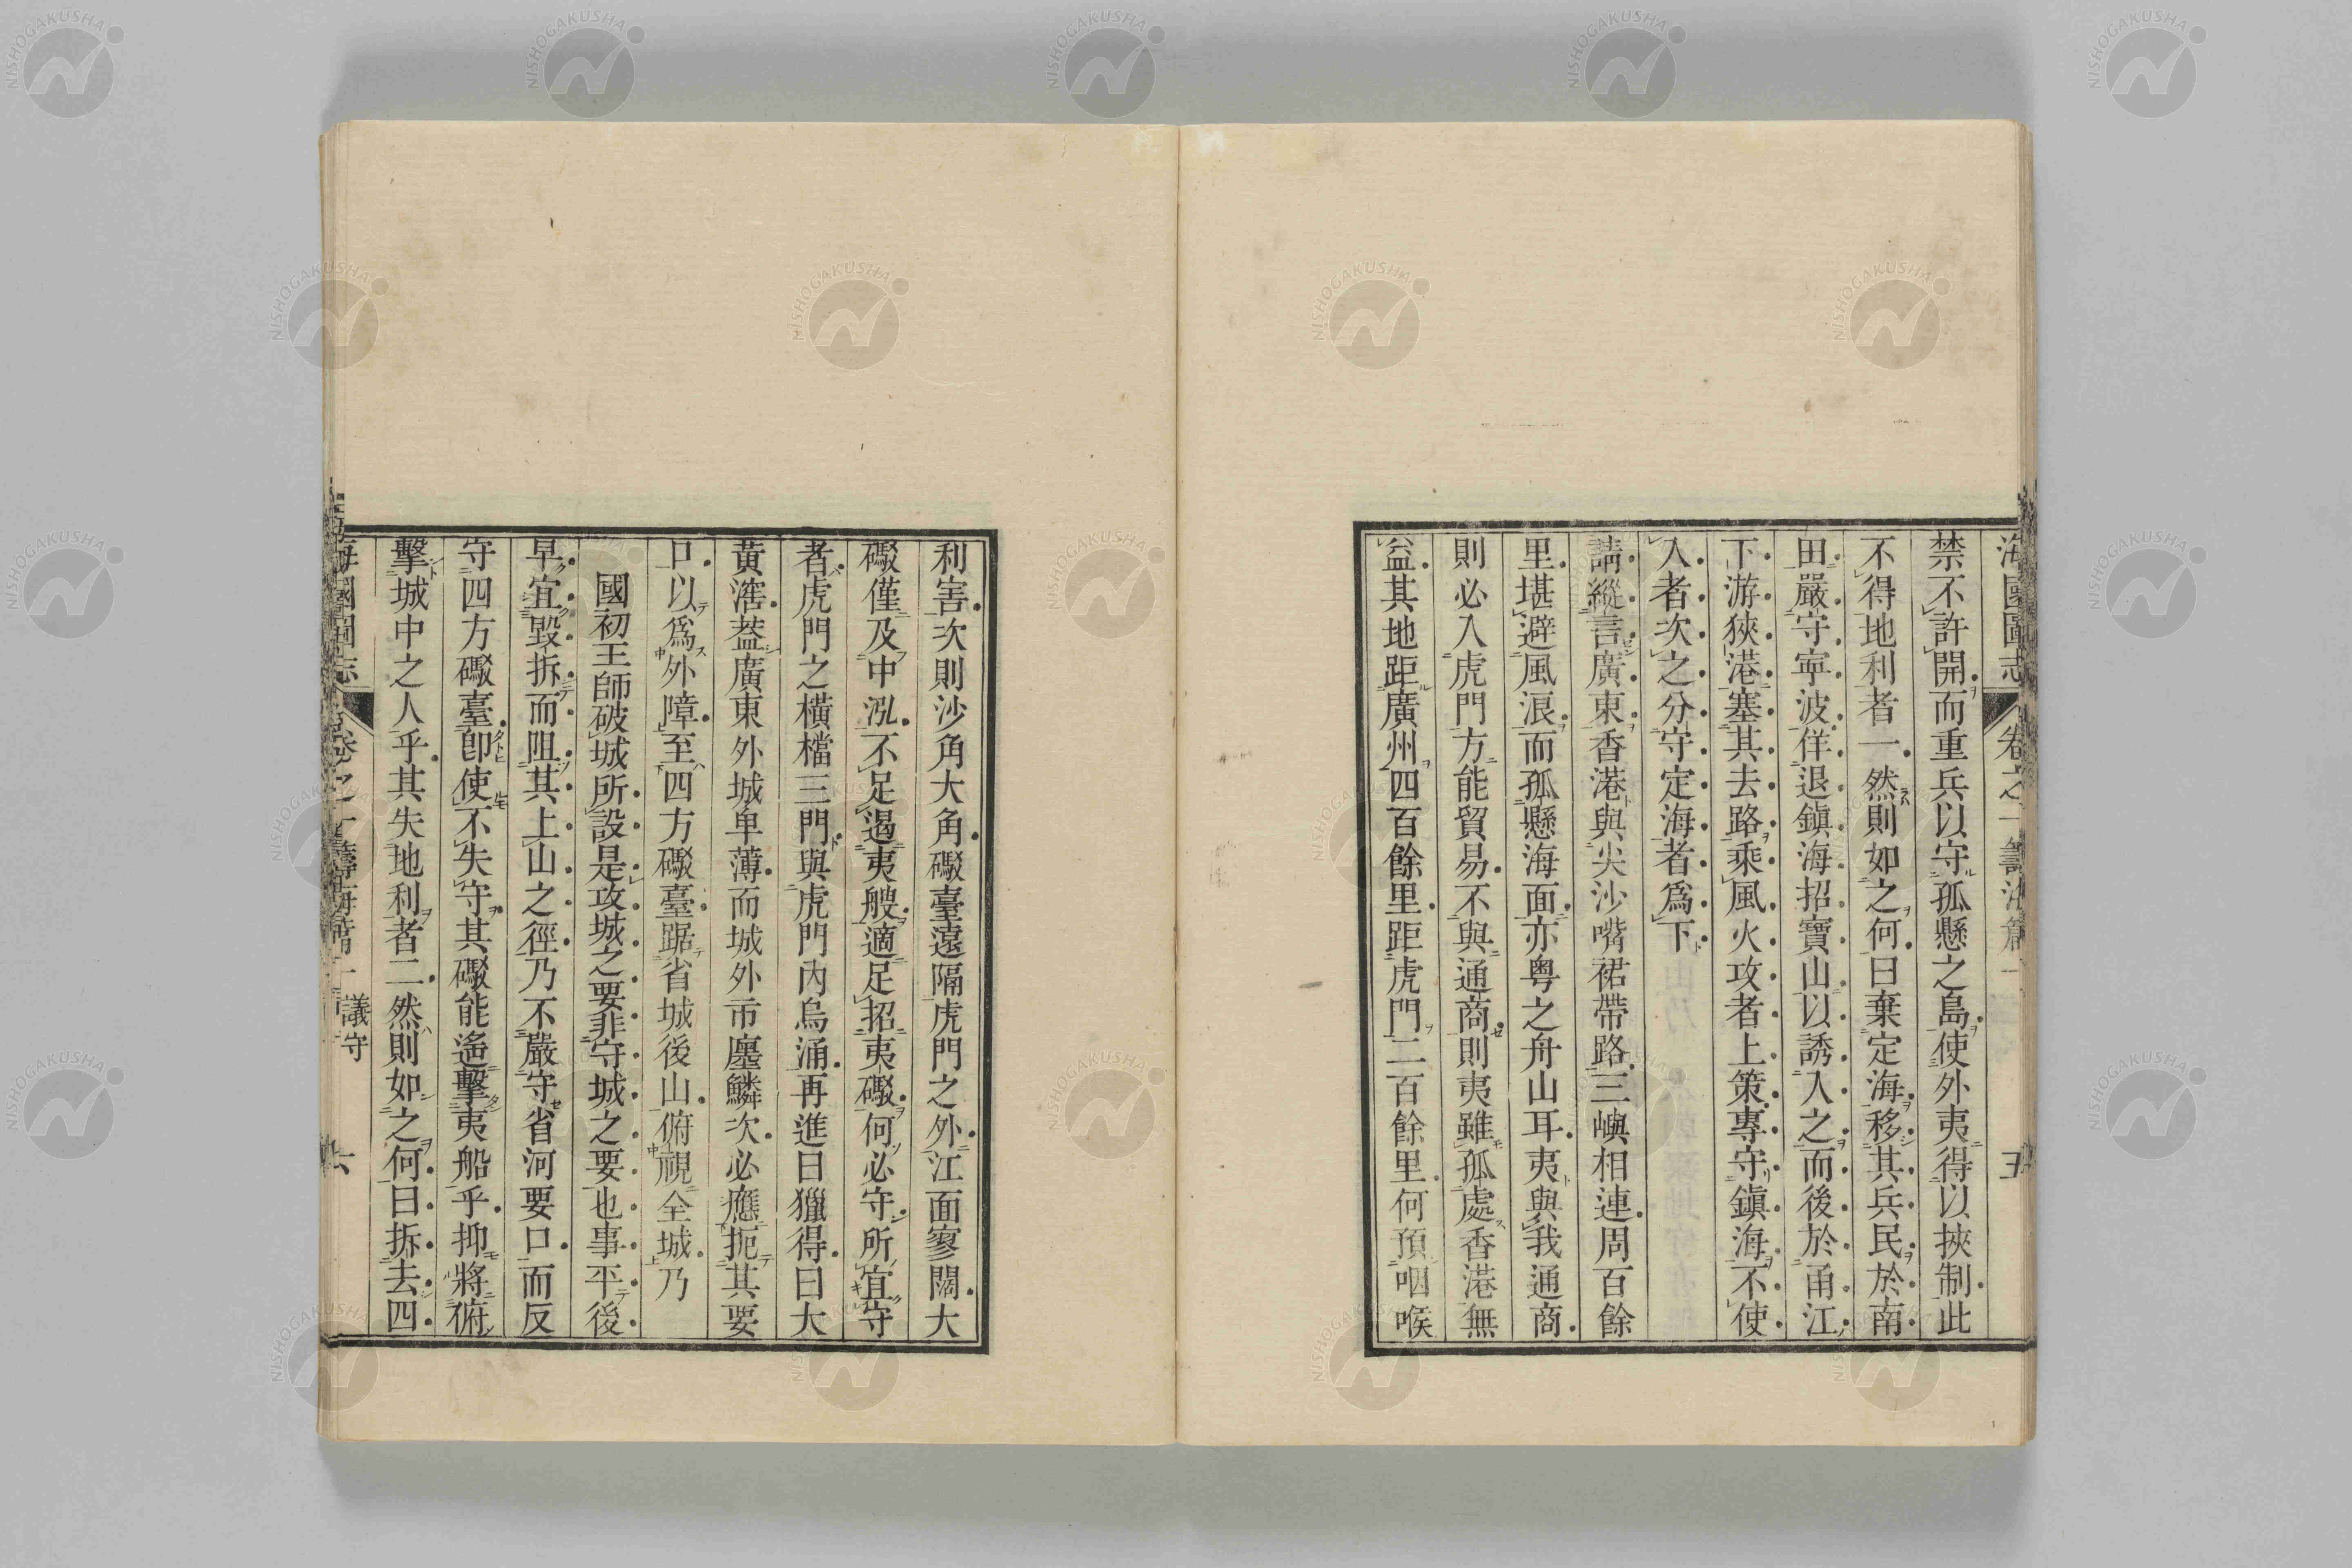 海國圖志 卷之一 籌海篇一 五
禁不許開而重兵以守孤懸之島使外夷得以挾制此
不得地利者一然則如之何曰棄定海移其兵民於南
田嚴守寧波佯退鎭海招寶山以誘入之而後於甬江
下游狹港塞其去路乘風火攻者上策專守鎭海不使
入者次之分守定海者爲下
請縱言廣東香港與尖沙嘴裙帶路三嶼相連周百餘
里堪避風浪而孤懸海面亦粵之舟山耳夷與我通商
則必入虎門方能貿易不與通商則夷雖孤處香港無
益其地距廣州四百餘里距虎門二百餘里何預咽喉
利害次則沙角大角礮臺遠隔虎門之外江面寥闊大
礮僅及中泓不足遏夷艘適足招夷礮何必守所宜守
者虎門之橫檔三門與虎門內烏涌再進曰獵得曰大
黃滘葢廣東外城卑薄而城外市廛鱗次必應扼其要
口以爲外障至四方礮臺踞省城後山俯視全城乃
國初王師破城所設是攻城之要非守城之要也事平後
早宜毀拆而阻其上山之徑乃不嚴守省河要口而反
守四方礮臺卽使不失守其礮能遙擊夷船乎抑將俯
擊城中之人乎其失地利者二然則如之何曰拆去四
海國圖志 卷之一 籌海篇一 議守 六
NISHOGAKUSHA